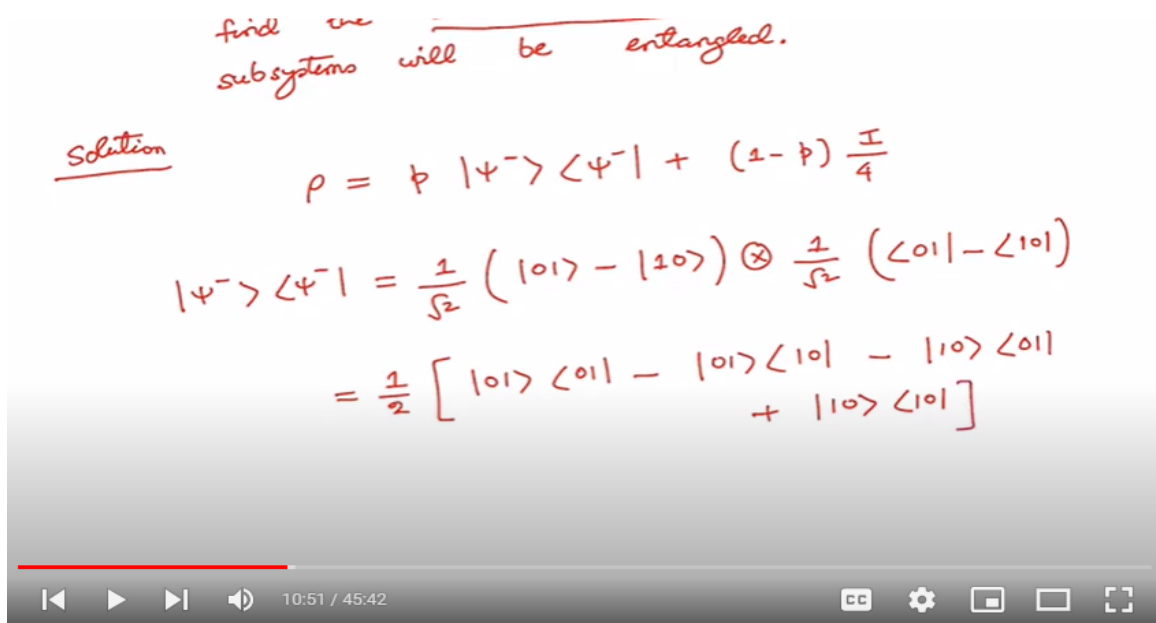 find the
subsystems will be entangled.
Solution
ρ = p |ψ⁻> <ψ⁻| + (1-p) I/4
|ψ⁻> <ψ⁻| = 1/√2 ( |01> - |10> ) ⊗ 1/√2 ( <01| - <10| )
= 1/2 [ |01> <01| - |01> <10| - |10> <01|
+ |10> <10| ]
10:51 / 45:42 CC